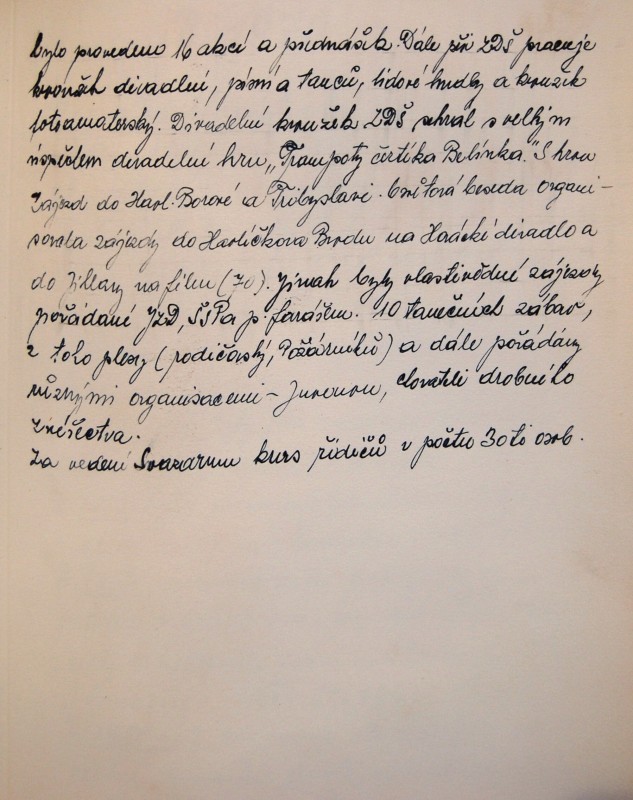 bylo provedeno 16 akcí a přednášek. Dále při ZDŠ pracuje
kroužek divadelní, písní a tanců, lidové hudby a kroužek
fotoamatérský. Divadelní kroužek ZDŠ sehrál s velkým
úspěchem divadelní hru „Trampoty čertíka Belínka." S hrou
zájezd do Havl. Borové a Přibyslavi. Osvětová beseda organi-
sovala zájezdy do Havlíčkova Brodu na Horácké divadlo a
do Jihlavy na film (70). Jinak byly vlastivědné zájezdy
pořádané JZD, p. farářem. 10 tanečních zábav,
z toho plesy (rodičovský, Požárníků) a dále pořádány
různými organisacemi – Junovou, chovateli drobného
zvířectva.
Za vedení Svazarmu kurs řidičů v počtu 30ti osob.